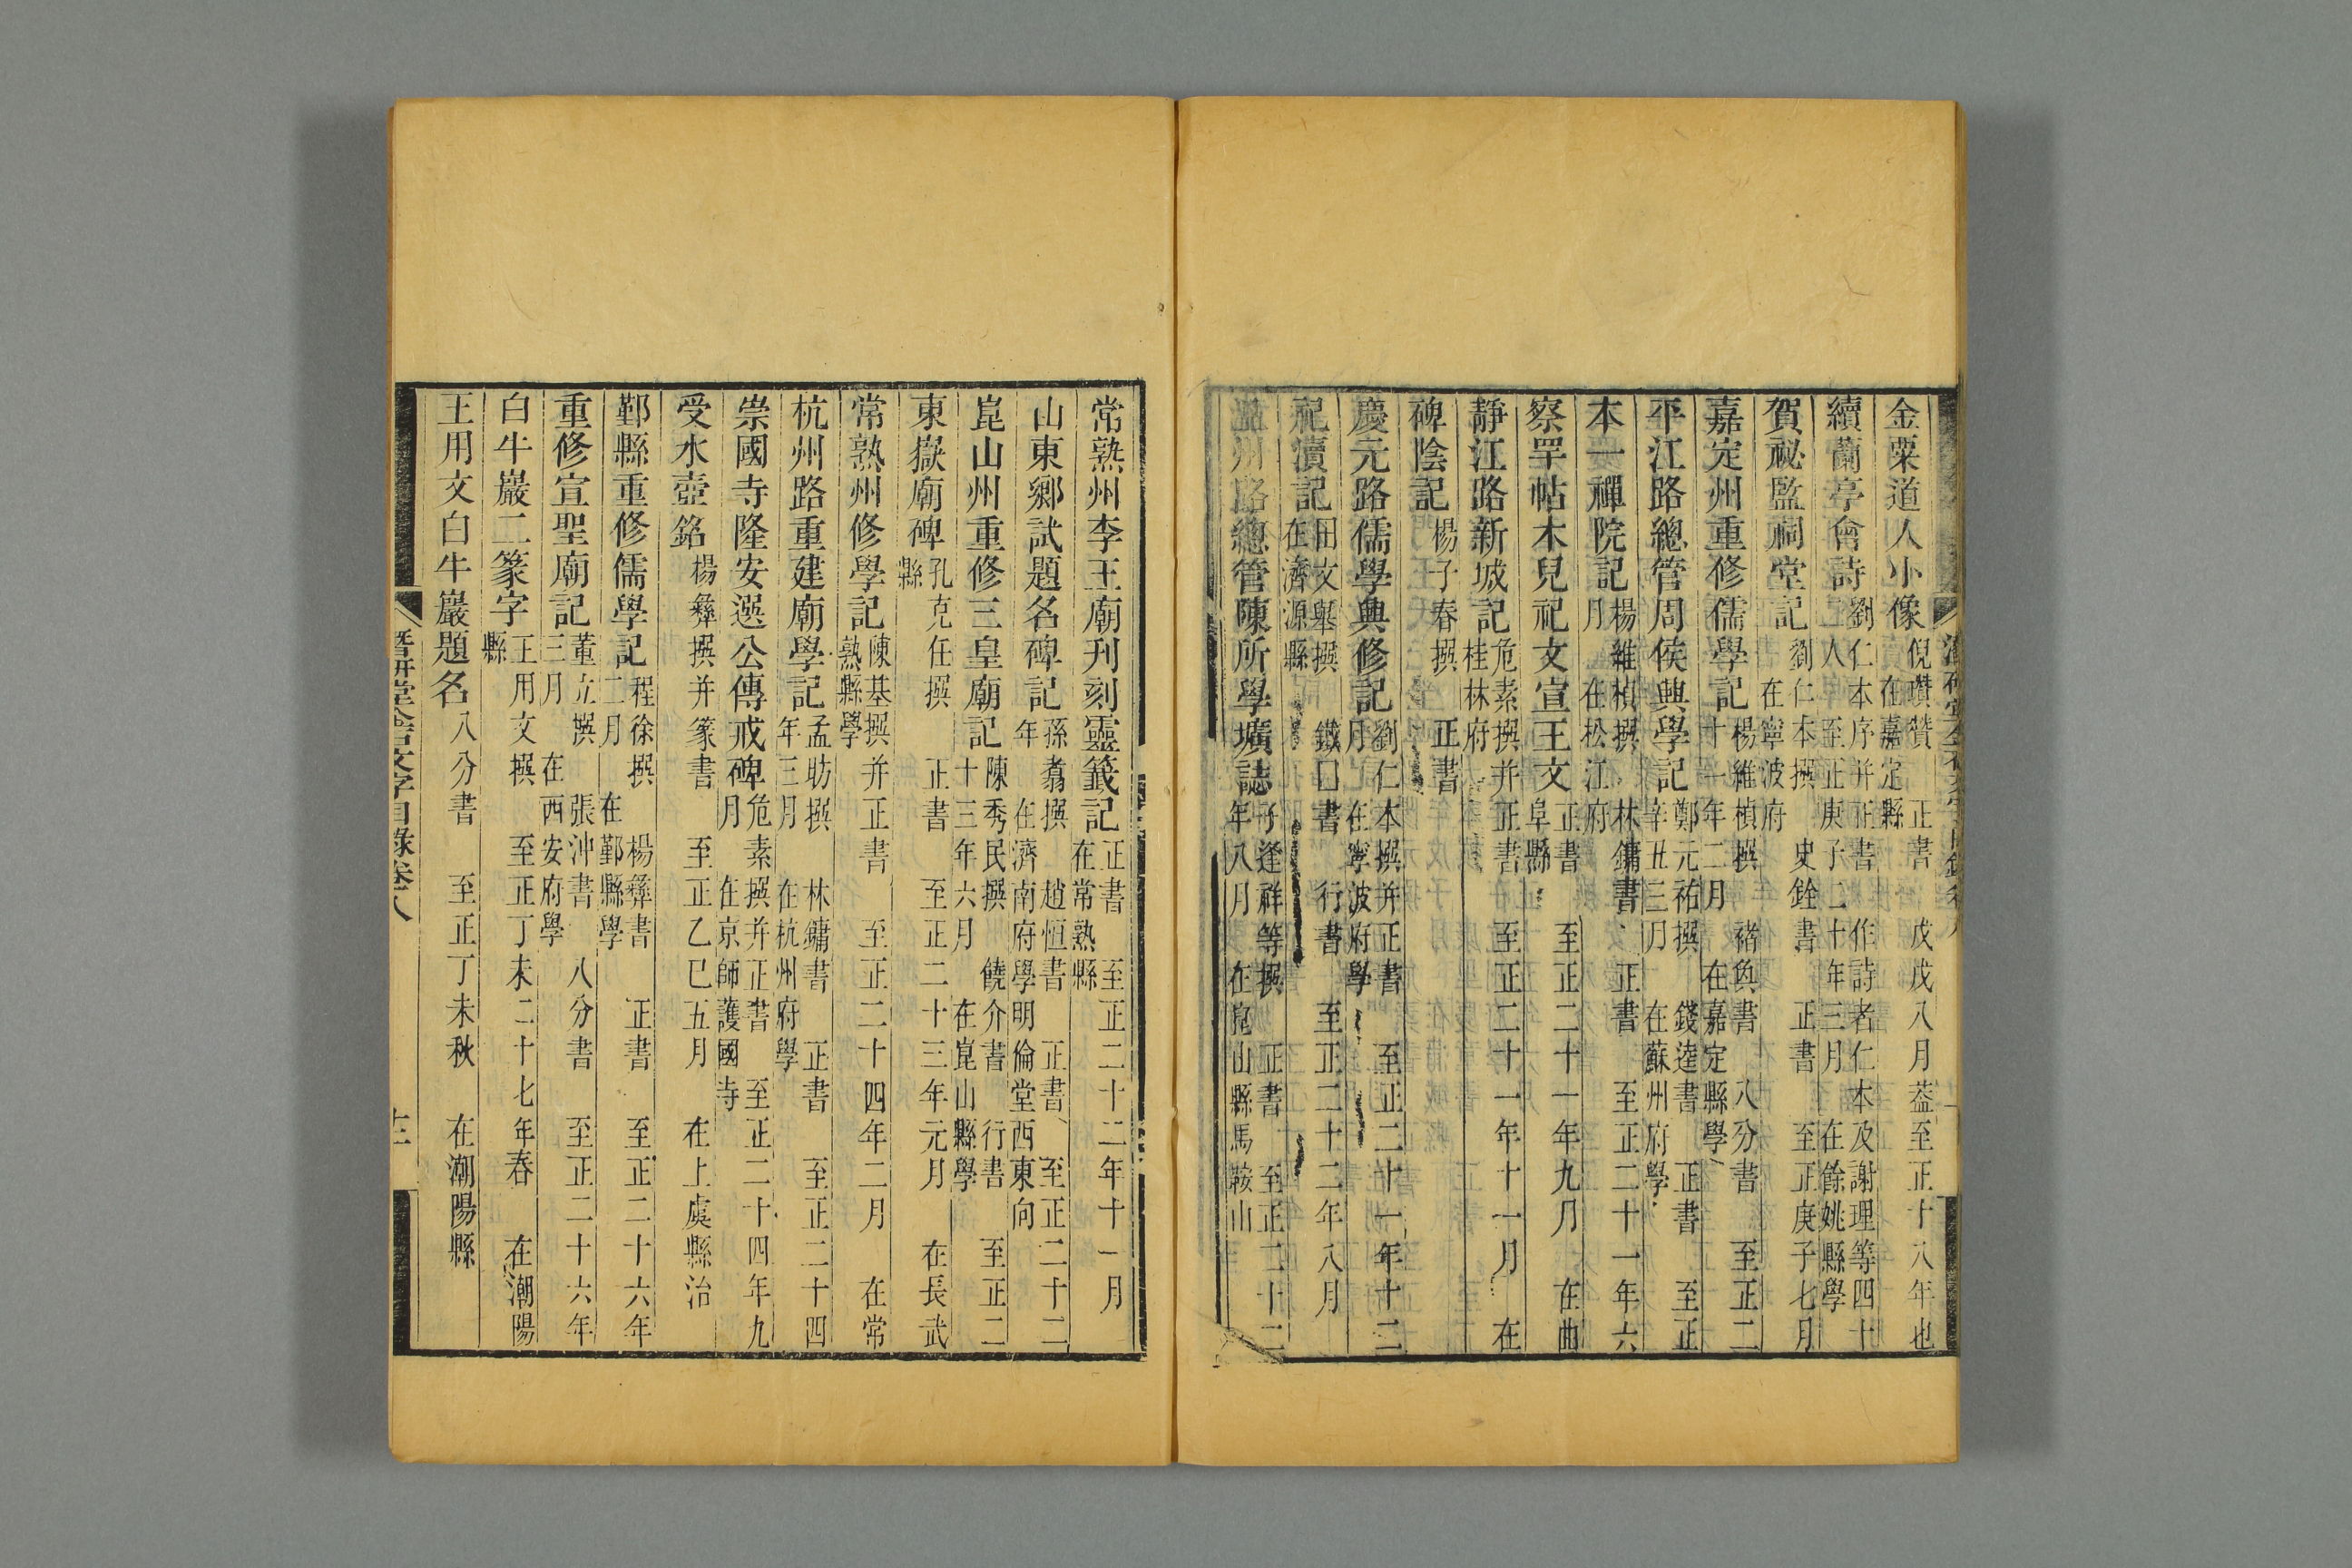 金粟道人小像倪瓚贊　正書　戊戌八月葢至正十八年也在嘉定縣
續蘭亭會詩劉仁本序并正書　作詩者仁本及謝理等四十二人　至正庚子二十年三月　在餘姚縣學
賀祕監祠堂記劉仁本撰　史銓書　正書　至正庚子七月在寧波府
嘉定州重修儒學記楊維楨撰　褚奐書　八分書　至正二十一年二月　在嘉定縣學
平江路總管周侯興學記鄭元祐撰　錢逵書　正書　至正辛丑三月　在蘇州府學
本一禪院記楊維楨撰　林鏞書　正書　至正二十一年六月　在松江府
察罕帖木兒祀文宣王文正書　至正二十一年九月　在曲阜縣
靜江路新城記危素撰并正書　至正二十一年十一月　在桂林府
碑陰記楊子春撰　正書
慶元路儒學興修記劉仁本撰并正書　至正二十一年十二月　在寧波府學
祀瀆記田文舉撰　鐵囗書　行書　至正二十二年八月在濟源縣
溫州路總管陳所學壙誌子逢祥等撰　正書　至正二十二年八月　在崑山縣馬鞍山
常熟州李王廟刊刻靈籤記正書　至正二十二年十一月在常熟縣
山東鄉試題名碑記孫翥撰　趙恆書　正書　至正二十二年　在濟南府學明倫堂西東向
崑山州重修三皇廟記陳秀民撰　饒介書　行書　至正二十三年六月　在崑山縣學
東嶽廟碑孔克任撰　正書　至正二十三年元月　在長武縣
常熟州修學記陳基撰并正書　至正二十四年二月　在常熟縣學
杭州路重建廟學記孟昉撰　林鏞書　正書　至正二十四年三月　在杭州府學
崇國寺隆安選公傳戒碑危素撰并正書　至正二十四年九月　在京師護國寺
受水壺銘楊彝撰并篆書　至正乙巳五月　在上虞縣治
鄞縣重修儒學記程徐撰　楊彝書　正書　至正二十六年二月　在鄞縣學
重修宣聖廟記董立撰　張沖書　八分書　至正二十六年三月　在西安府學
白牛巖二篆字王用文撰　至正丁未二十七年春　在潮陽縣
王用文白牛巖題名八分書　至正丁未秋　在潮陽縣
潛研堂金石文字目錄卷八　十二